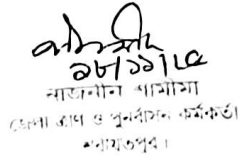 ২৮/১১/২৫
নাজনীন শামীমা
জেলা ত্রাণ ও পুনর্বাসন কর্মকর্তা
শরীয়তপুর।